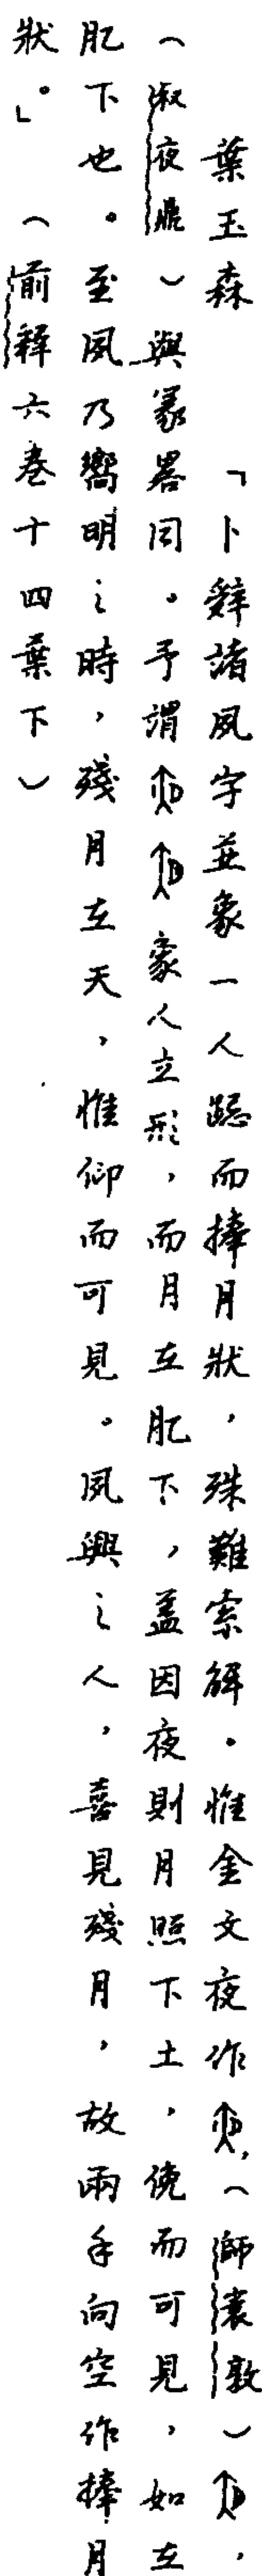 葉玉森　「卜辭諸夙字並象一人跽而捧月狀，殊難索解。惟金文夜作，（師𡩜敦），
（淑夜鼎）與篆畧同。予謂象人立形，而月在肊下，蓋因夜則月照下土，俛而可見，如在
肊下也。至夙乃嚮明之時，殘月在天，惟仰而可見。夙興之人，喜見殘月，故兩手向空作捧月
狀。」（前釋六卷十四葉下）